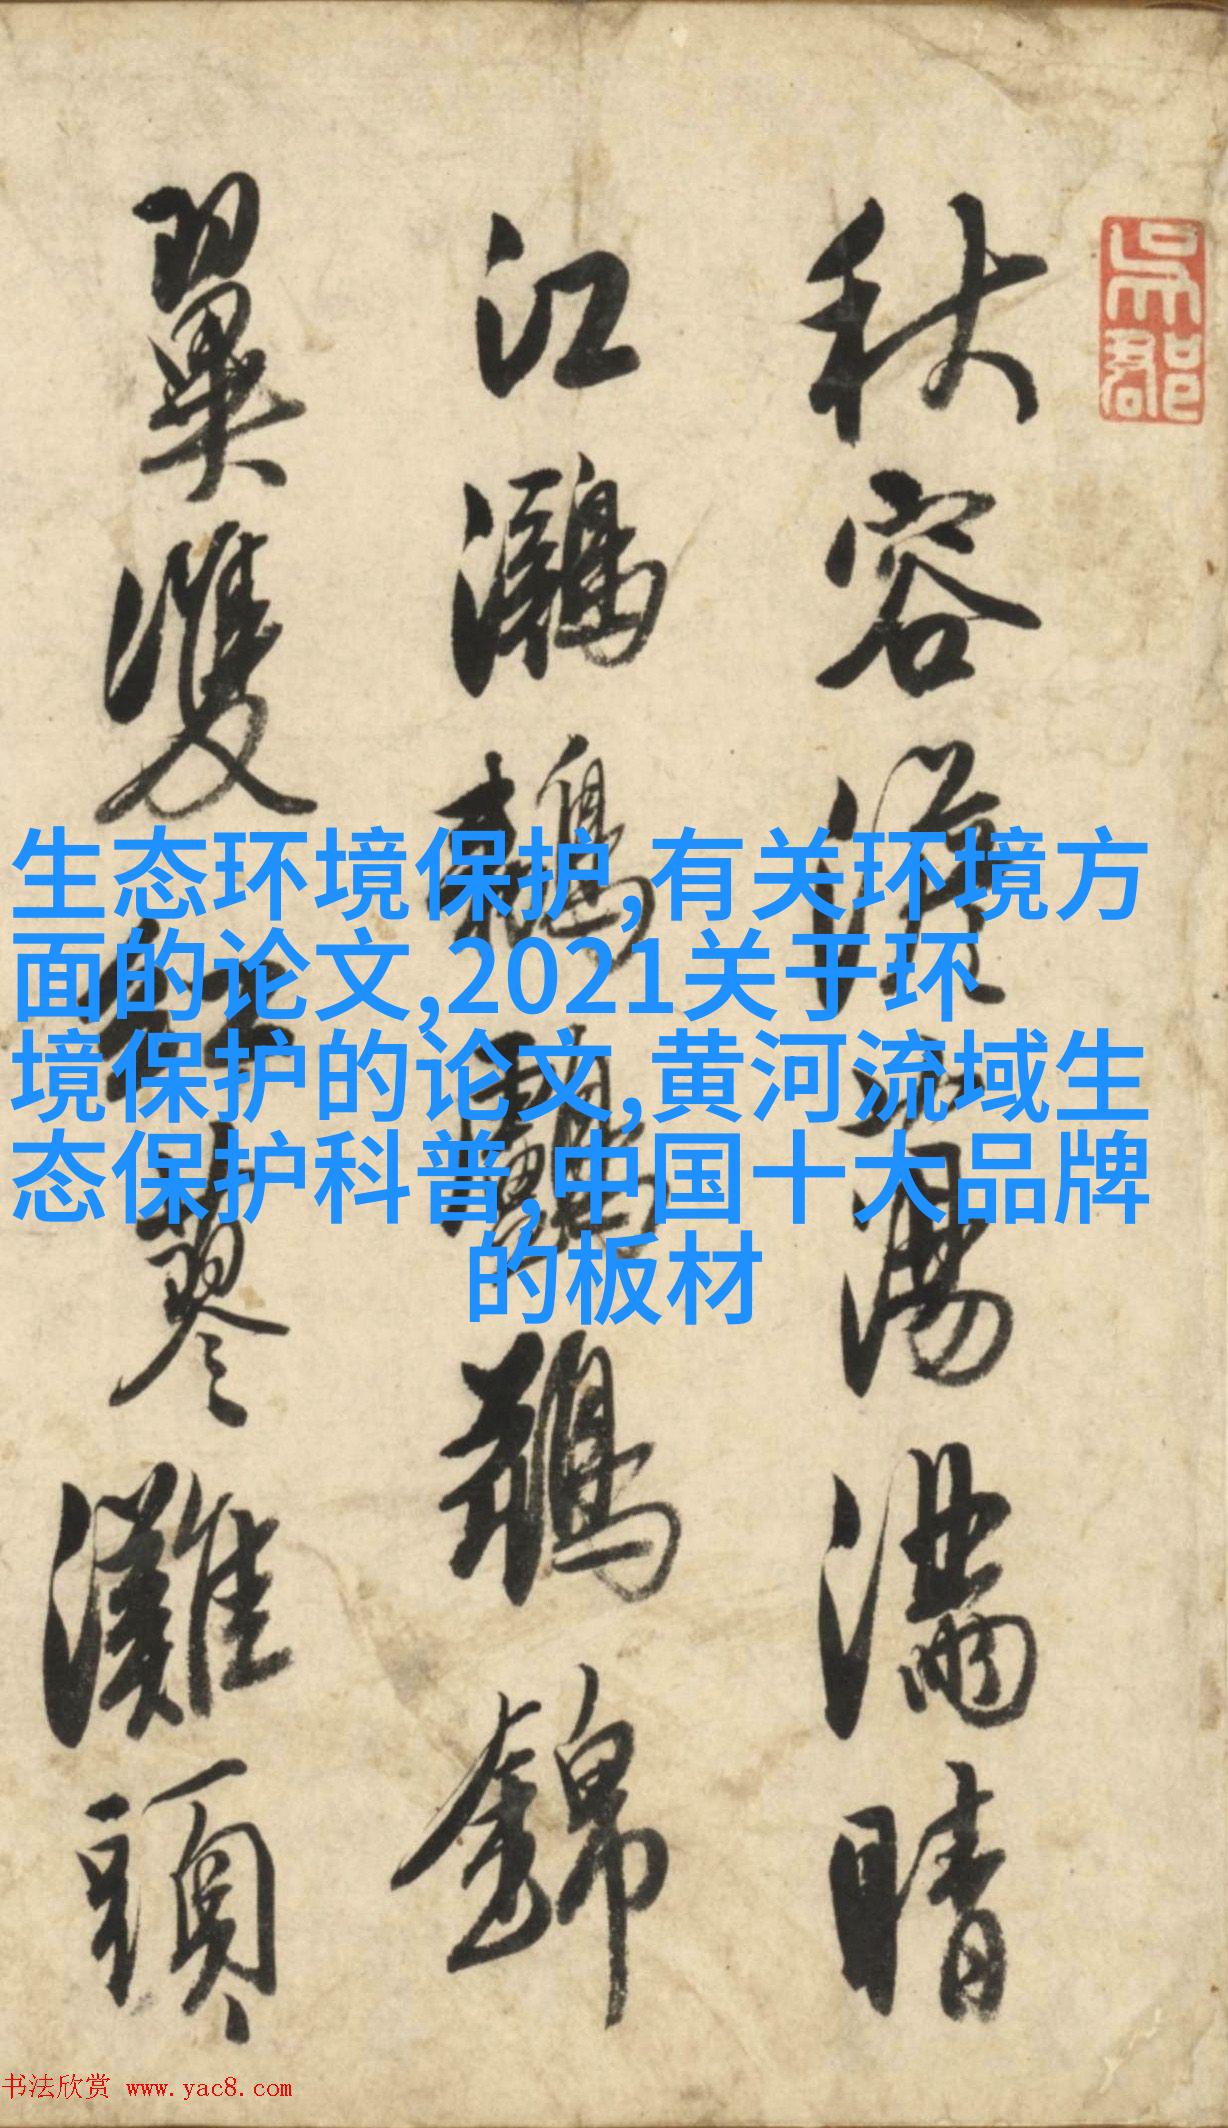 吳郡
秋容澹蕩滿晴
江鸂鶒鸕鶿錦
翼雙紅蓼灘頭
生态环境保护,有关环境方
面的论文,2021关于环
境保护的论文,黄河流域生
态保护科普,中国十大品牌
的板材
书法欣赏 www.yac8.com